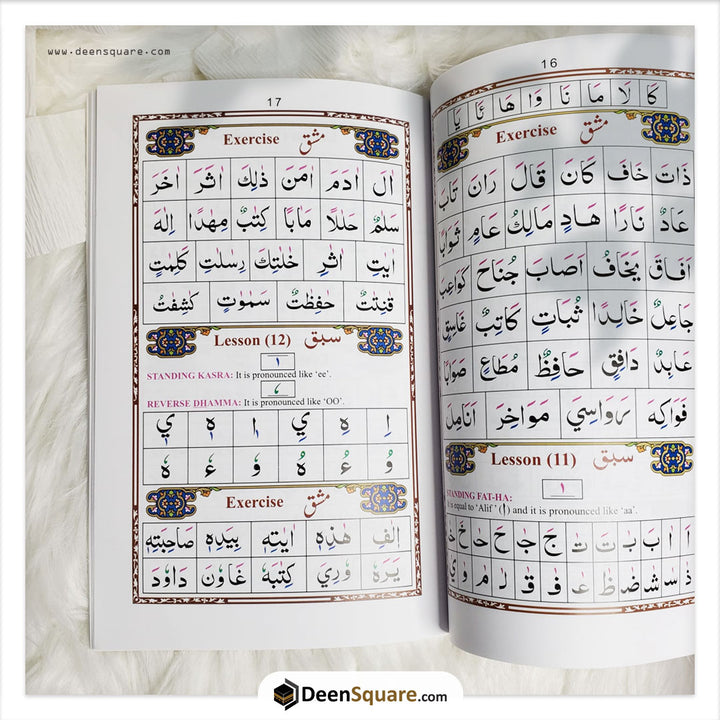 www.deensquare.com
16
كَا لَا مَا نَا وَا هَا ئَا يَا
Exercise مشق
ذَاتَ خَافَ كَانَ قَالَ رَانَ تَابَ
عَادٌ نَارًا هَادٍ مَالِكُ عَامٍ ثَوَابًا
يَخَافُ اَصَابَ جُنَاحَ كَوَاعِبَ
جَاعِلٌ خَالِدًا ثُبَاتٍ كَاتِبٌ غَاسِقٍ
عَابِدٌ دَافِقٍ حَافِظٌ مُطَاعٍ صَوَابًا
فَوَاكِهَ رَوَاسِيَ مَوَاخِرَ اَنَامِلَ
Lesson (11) سبق
STANDING FAT-HA:
is equal to ‘Alif’ (ا) and it is pronounced like ‘aa’.
17
Exercise مشق
اٰلَ اٰدَمَ اٰمَنَ ذٰلِكَ اٰثَرَ اٰخَرَ
سَلٰمٌ حَلٰلًا مَاٰبًا كِتٰبٌ مِهٰدًا اِلٰهَ
اٰيٰتِ اٰثٰرِ خٰلَتِكَ رِسٰلٰتِ كَلِمٰتٍ
قٰنِتٰتٌ حٰفِظٰتٌ سَمٰوٰتٍ كٰشِفٰتُ
Lesson (12) سبق
STANDING KASRA: It is pronounced like ‘ee’.
REVERSE DHAMMA: It is pronounced like ‘OO’.
Exercise مشق
اٖلٰفِ هٰذِهٖ اٰيٰتِهٖ بِيَدِهٖ صَاحِبَتِهٖ
يَرَهٗ وٗرِيَ كُتُبَهٗ غَاوٗنَ دَاوٗدَ
DeenSquare.com